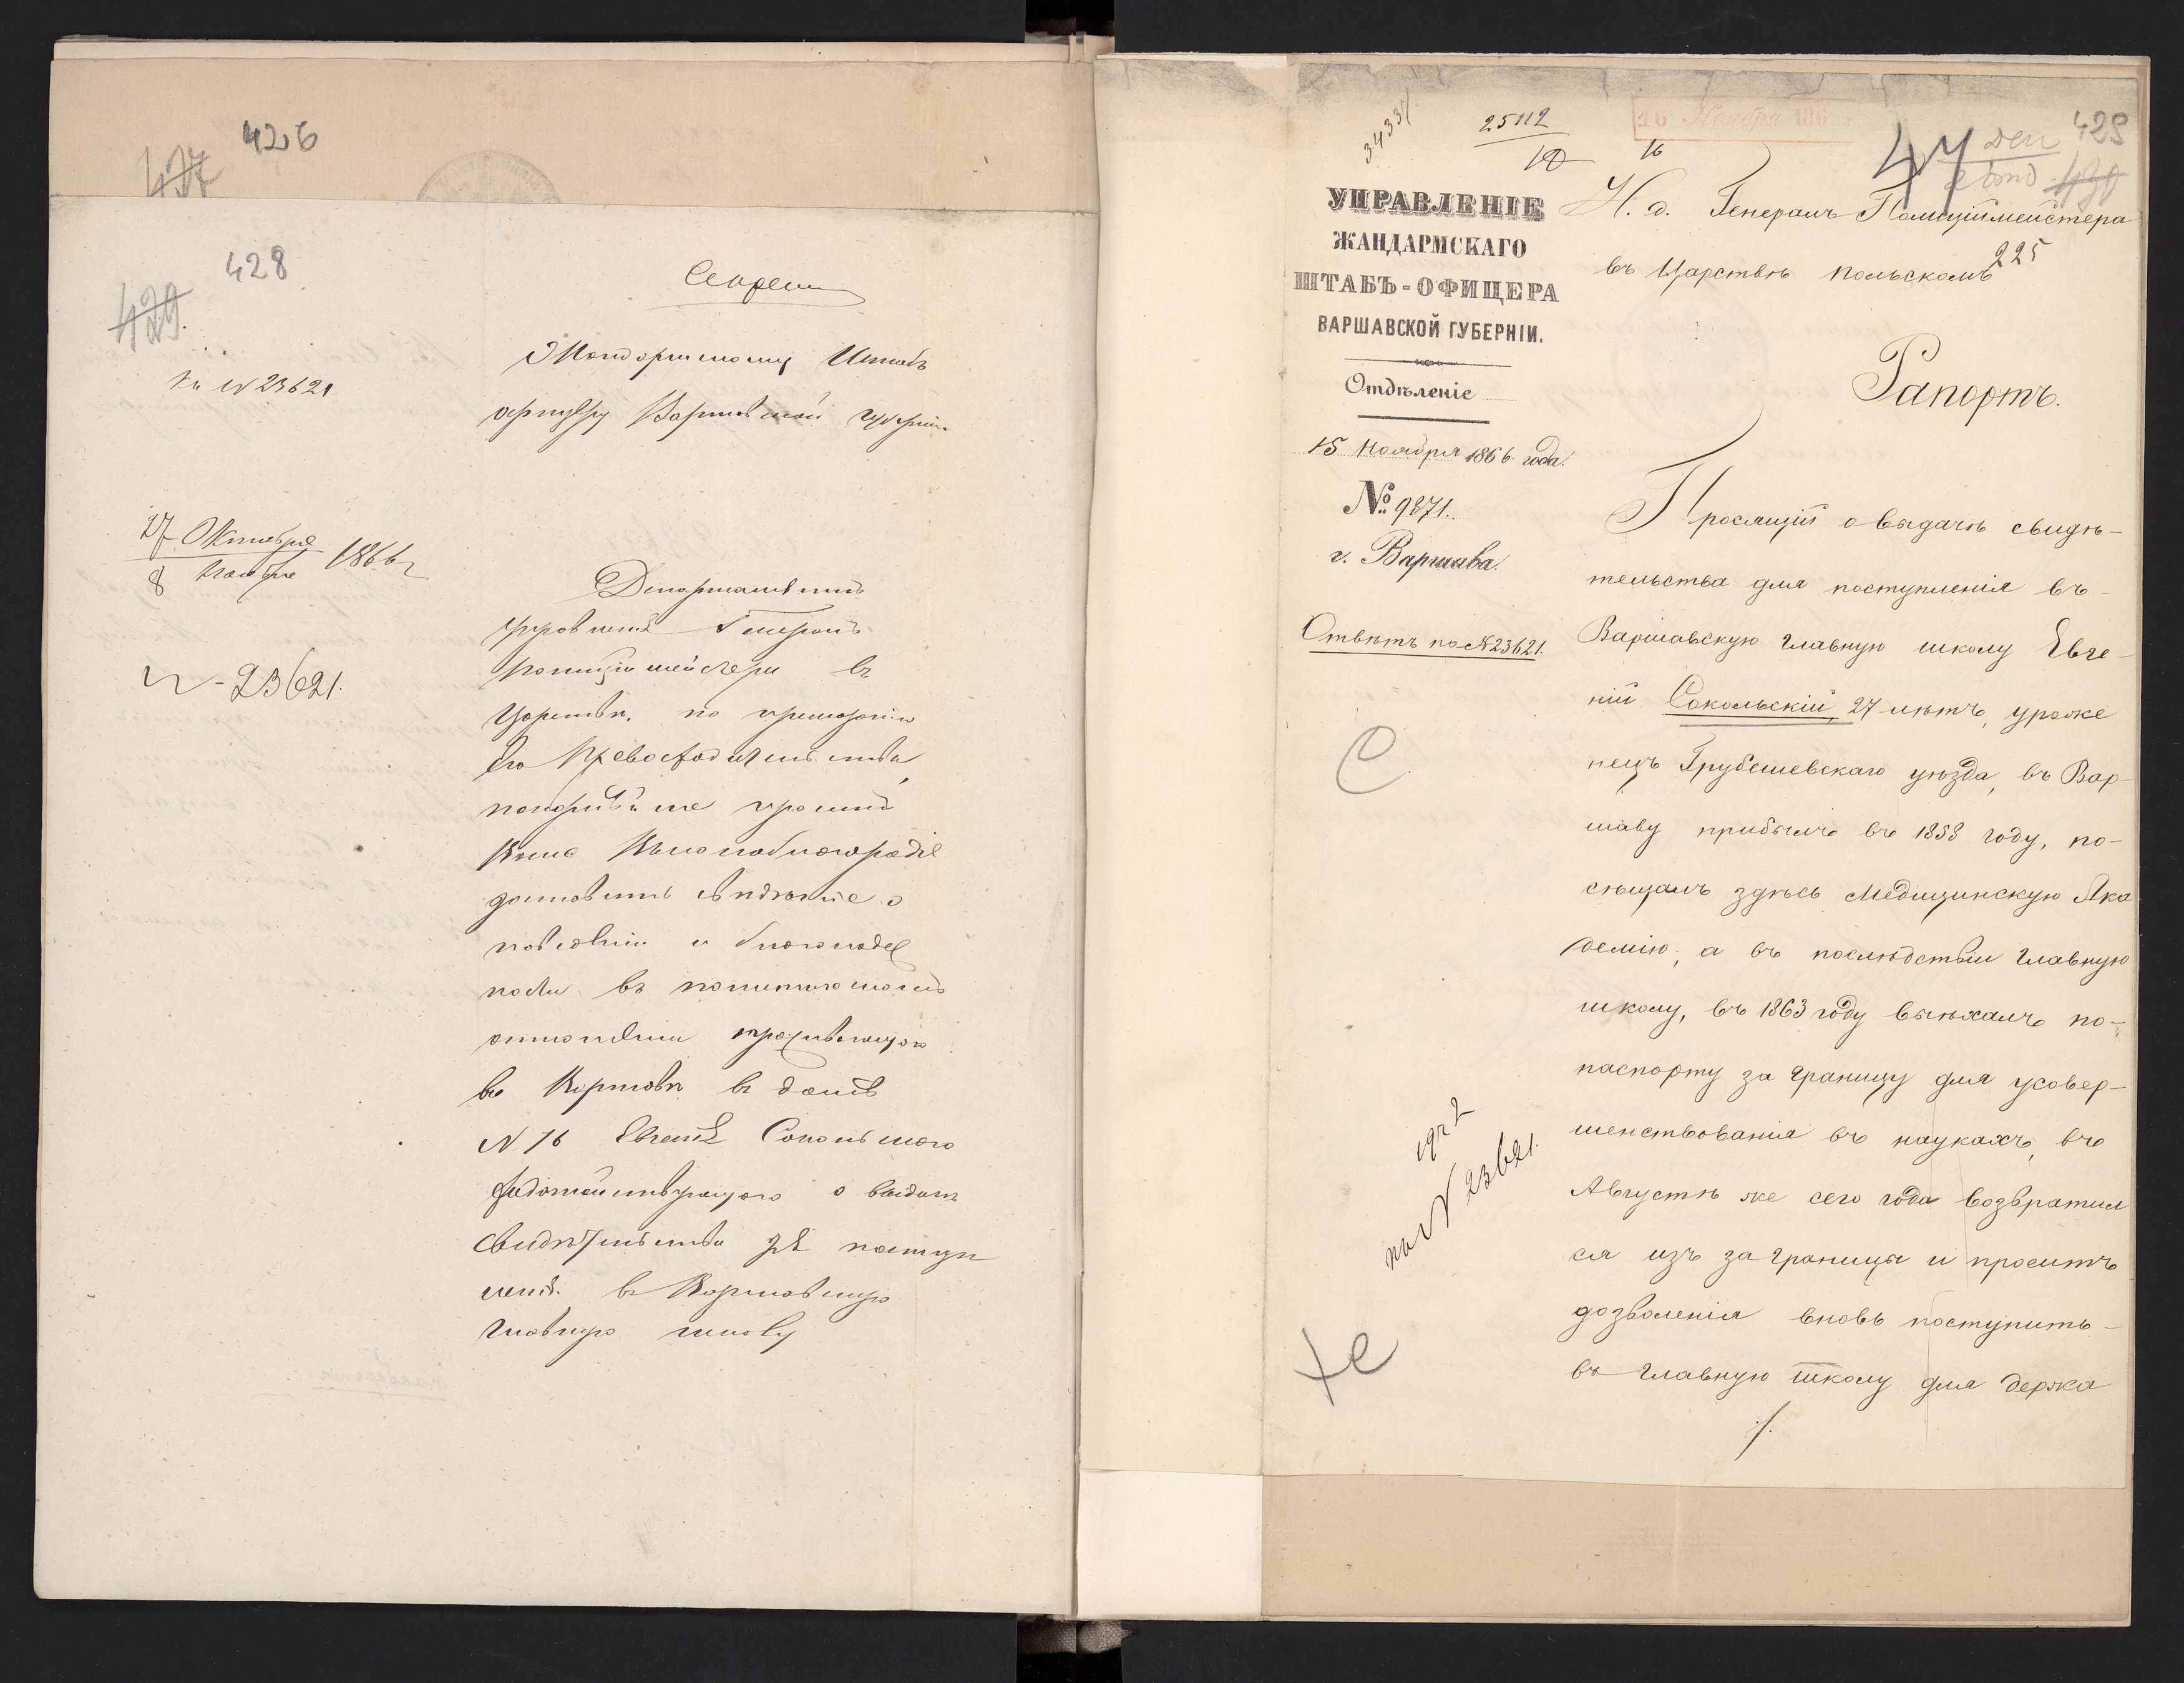 426
427
428
429.
Секретно
Жандармскому Штабъ
офицеру Варшавской губерніи
къ № 23621
27 Октября
8 Ноября 1866 г
№ 23621.
Департаментъ
управленія Генералъ
полиціймейстера въ
Царствѣ, по приказанію
Его Превосходительства,
покорнѣйше проситъ
Ваше Высокоблагородіе
доставить свѣдѣніе о
поведеніи и благонадеж
ности въ политическомъ
отношеніи проживающаго
въ Варшавѣ въ домѣ
№ 76 Евгенія Сокольскаго
ходатайствующаго о выдачѣ
свидѣтельства для поступ
ленія въ Варшавскую
главную школу
3433
25112
16 Ноября 186
16
47
429
430
225
УПРАВЛЕНІЕ
ЖАНДАРМСКАГО
ШТАБЪ-ОФИЦЕРА
ВАРШАВСКОЙ ГУБЕРНІИ.
Отдѣленіе
15 Ноября 1866 года.
№ 9371.
г. Варшава.
Отвѣтъ на № 23621.
И. д. Генералъ Полиціймейстера
въ Царствѣ Польскомъ
Рапортъ.
Просящій о выдачѣ свидѣ-
тельства для поступленія въ-
Варшавскую главную школу Евге-
ній Сокольскій, 27 лѣтъ, уроже
нецъ Грубешевскаго уѣзда, въ Вар-
шаву прибылъ въ 1858 году, по-
сѣщалъ здѣсь Медицинскую Ака
демію, а въ послѣдствіи главную
школу, въ 1863 году выѣхалъ по-
паспорту за границу для усовер-
шенствованія въ наукахъ, въ
Августѣ же сего года возвратил
ся изъ заграницы и проситъ
дозволенія вновь поступить-
въ главную школу для держа
./.
С
№ 23621.